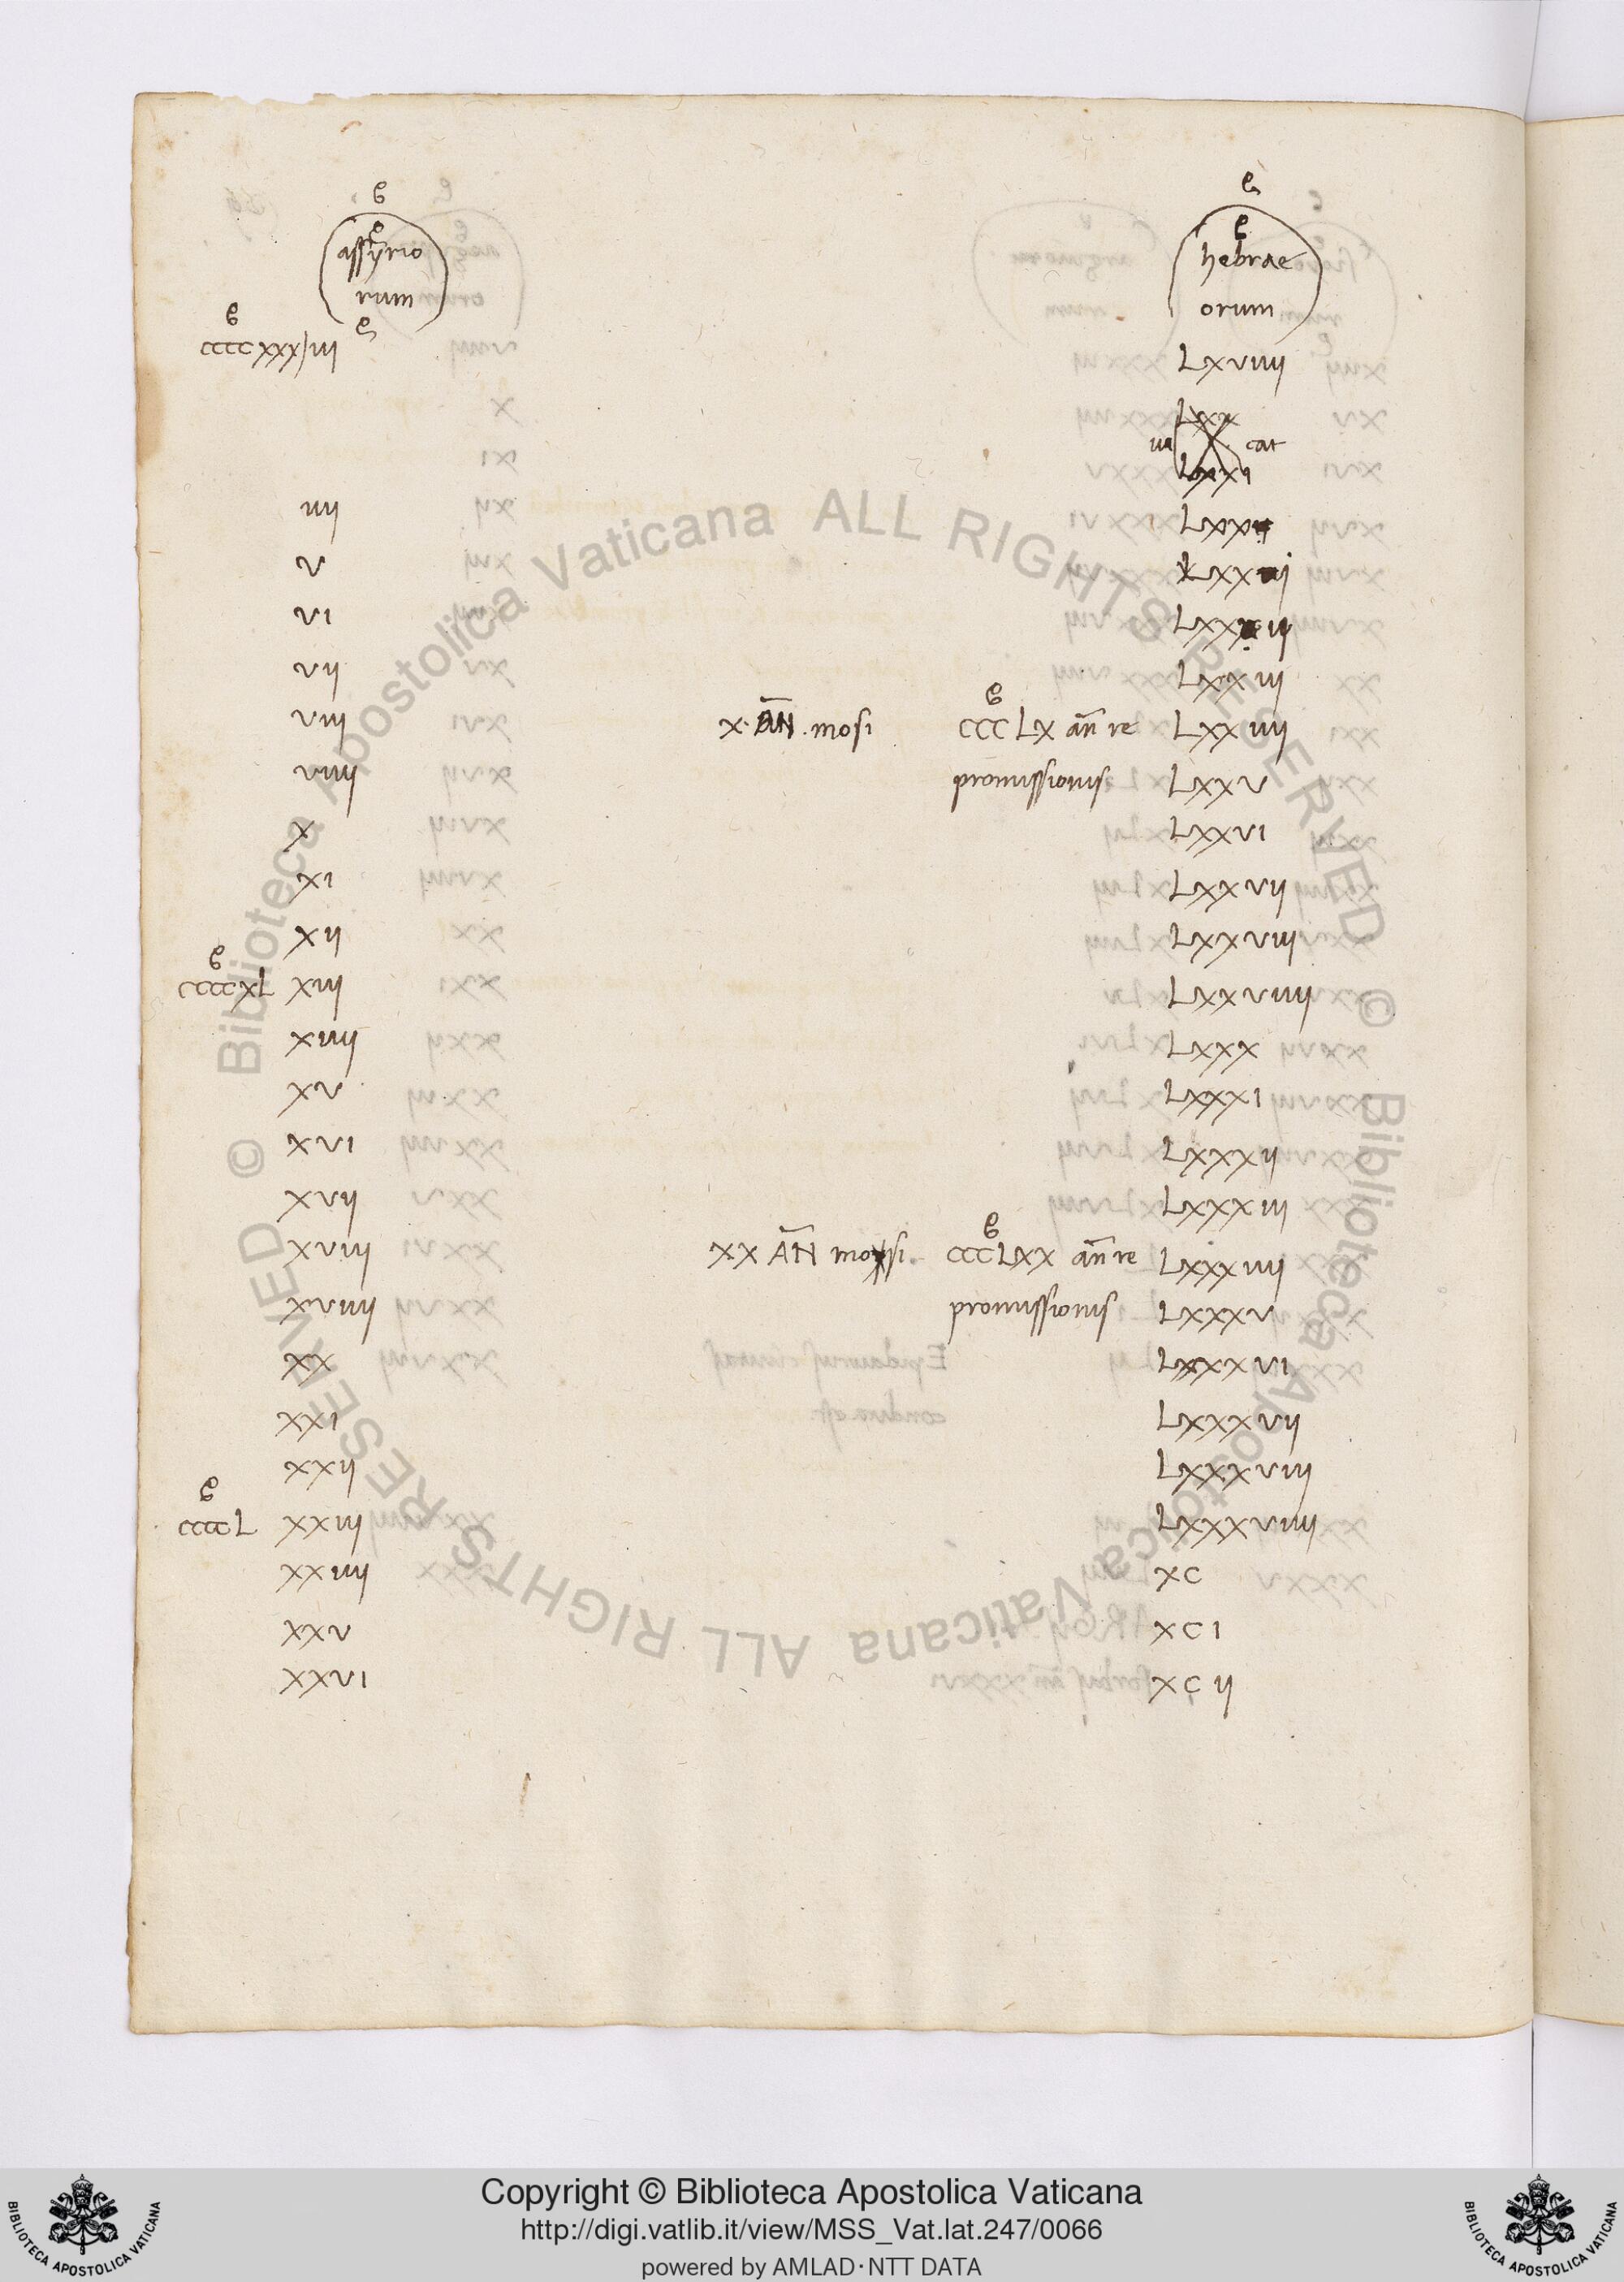 assyrio
rum
hebrae
orum
ccccxxx iii LXVIIII
LXX
ua cat
LXXI
iiii LXX
v LXX
vi LXX
vii LXXiii
viii X. AN̄. mosi CCCLX an̄ re LXXiiii
viiii promissionis LXXV
X LXXVI
XI LXXVII
XII LXXVIII
ccccXL XIII LXXVIIII
XIIII LXXX
XV LXXXI
XVI LXXXII
XVII LXXXIII
XVIII XX AN̄ mosi. CCCLXX an̄ re LXXXIIII
XVIIII promissionis LXXXV
XX LXXXVI
XXI LXXXVII
XXII LXXXVIII
ccccL XXIII LXXXVIIII
XXIIII XC
XXV XCI
XXVI XCII
© Biblioteca Apostolica Vaticana ALL RIGHTS RESERVED
© Biblioteca Apostolica Vaticana ALL RIGHTS RESERVED
Copyright © Biblioteca Apostolica Vaticana
http://digi.vatlib.it/view/MSS_Vat.lat.247/0066
powered by AMLAD·NTT DATA
BIBLIOTECA APOSTOLICA VATICANA
BIBLIOTECA APOSTOLICA VATICANA